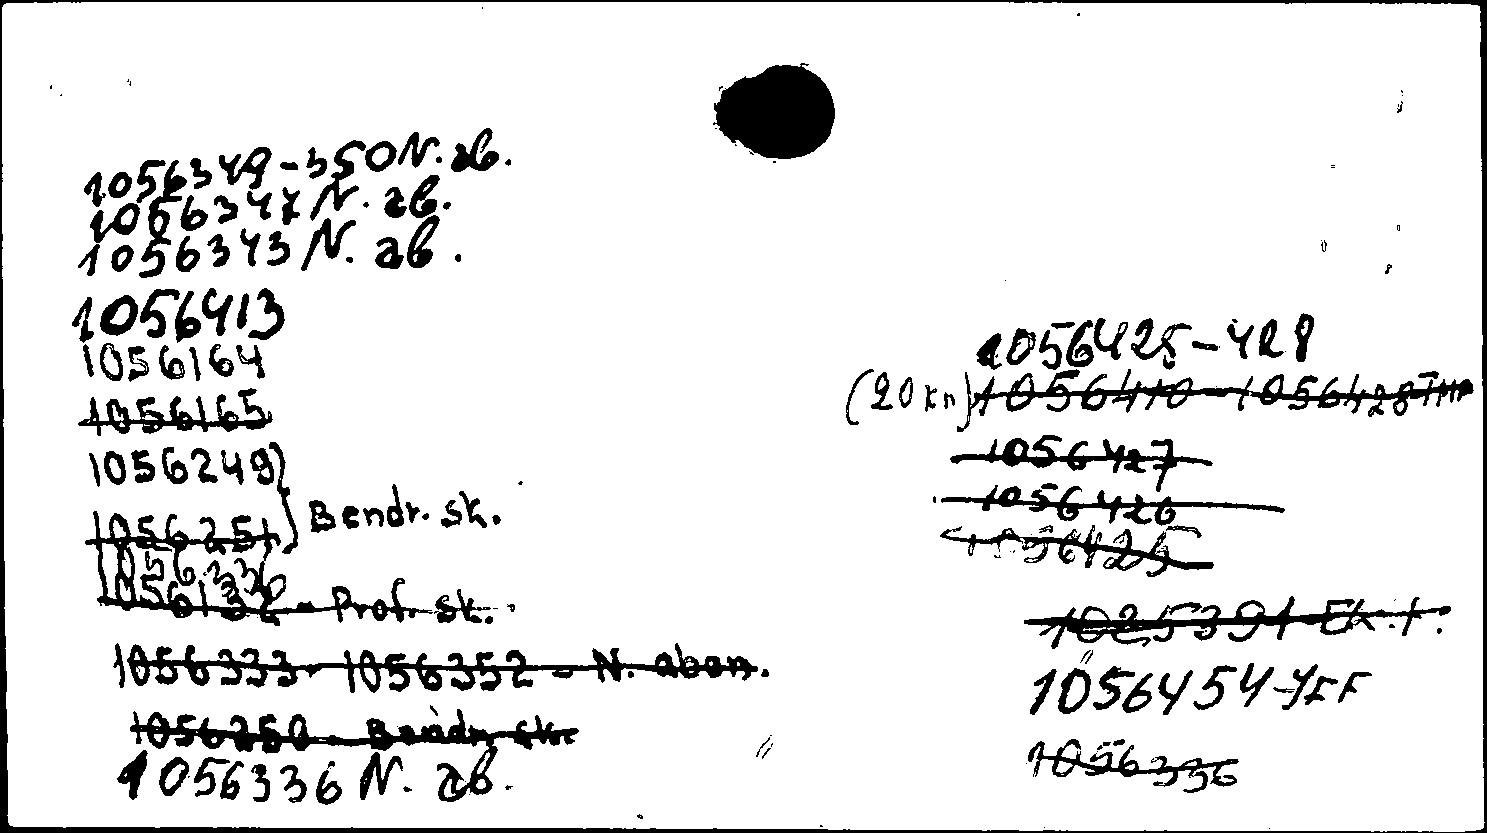 1056349-350 N. ab.
1056347 N. ab.
1056343 N. ab.
1056413
1056164
1056165
1056249
1056251 Bendr. sk.
1056336
1056132 - Prof. sk.
1056333 - 1056352 - N. abon.
1056250 - Bendr. sk.
1056336 N. ab.
1056425-428
(20 kn) 1056410 - 1056428
1056427
1056426
1056425
1025391
1056454
1056336